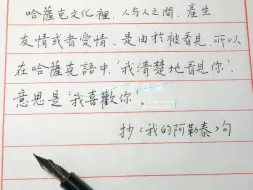 哈薩克文化裡，人与人之間，產生
友情或者愛情，是由於被看見，所以
在哈薩克語中，“我清楚地看見你”，
意思是“我喜歡你”。
抄《我的阿勒泰》句